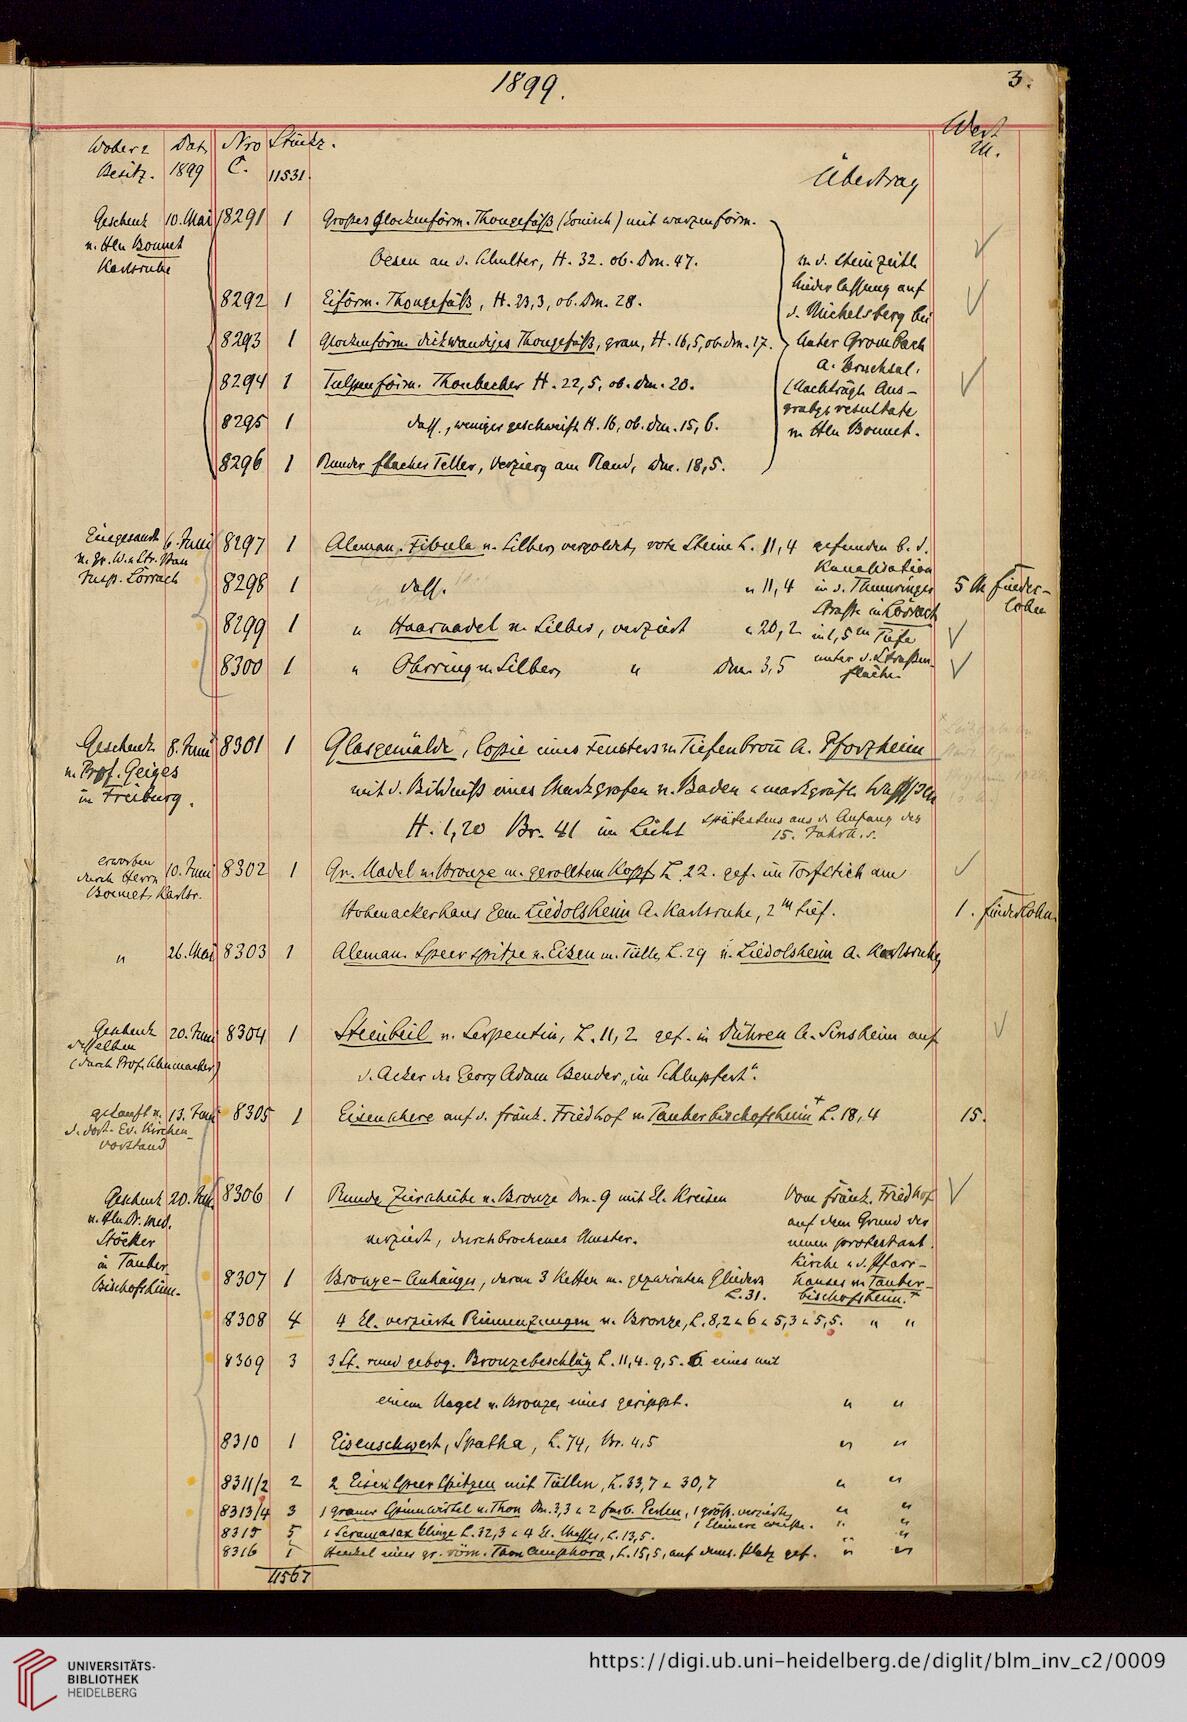 1899.
3.
Woher u. Besitz.
Dat. 1899
Nro C.
Stückz.
11531.
Übertrag
Wert M.
Geschenk
v. Hrn Bonnet
Karlsruhe
10. Mai 8291 1 Großes glockenförm. Thongefäß (konisch) mit warzenförm.
Oesen an d. Schulter, H. 32. ob. Dm. 47.
8292 1 Eiförm. Thongefäß, H. 23,3, ob. Dm. 28.
8293 1 Glockenförm. dickwandiges Thongefäß, grau, H. 16,5, ob. dm. 17.
8294 1 Tulpenförm. Thonbecher H. 22,5, ob. dm. 20.
8295 1 dass., weniger geschweift H. 16, ob. dm. 15,6.
8296 1 Runder flacher Teller, Verzierg am Rand, Dm. 18,5.
v. d. steinzeitl.
Niederlassung auf
d. Michelsberg bei
Unter Grombach
A. Bruchsal.
(Nachträgl. Aus-
grabgsresultate
v. Hrn Bonnet.
Eingesandt
v. gr. W. u. Str. Bau
Insp. Lörrach
6. Juni 8297 1 Aleman. Fibula v. Silber, vergoldet, rote Steine L. 11,4
8298 1 dass. " 11,4
8299 1 " Haarnadel v. Silber, verziert " 20,2
8300 1 " Ohrring v. Silber, " Dm. 3,5
gefunden b. d.
Kanalisation
in d. Thumringer
Straße in Lörrach
in 1,5 m Tiefe
unter d. Straßen-
fläche.
5 M Finder-
lohn
Geschenk
v. Prof. Geiges
in Freiburg.
8. Juni 8301 1 Glasgemälde, Copie eines Fensters v. Tiefenbronn A. Pforzheim
mit d. Bildniß eines Markgrafen v. Baden u. markgräfl. Wappen
H. 1,20 Br. 41 im Licht spätestens aus d. Anfang des
15. Jahrh. s.
erworben
durch Herrn
Bonnet, Karlsr.
10. Juni 8302 1 Gr. Nadel v. Bronze m. gerolltem Kopf L. 22. gef. im Torfstich am
Hohenackerhaus Gem. Liedolsheim A. Karlsruhe, 2 m tief.
1. Finderlohn.
" 26. Mai 8303 1 Aleman. Speerspitze v. Eisen m. Tülle, L. 29 v. Liedolsheim A. Karlsruhe
Geschenk
desselben
(durch Prof. Schumacher)
20. Juni 8304 1 Steinbeil v. Serpentin, L. 11,2 gef. in Dühren A. Sinsheim auf
d. Acker des Georg Adam Bender „im Schlupfert“.
gekauft v.
d. dort. Ev. Kirchen-
vorstand
13. Juni 8305 1 Eisenschere auf d. fränk. Friedhof v. Tauberbischofsheim + L. 18,4
15.
Geschenk
v. Hrn Dr. med.
Stöcker
in Tauber
Bischofsheim.
20. Juni 8306 1 Runde Zierscheibe v. Bronze Dm. 9 mit kl. Kreisen
verziert, durchbrochenes Muster.
Vom fränk. Friedhof
auf dem Grund der
neuen protestant.
Kirche u. d. Pfarr-
hauses v. Tauber-
bischofsheim. +
8307 1 Bronze-Anhänger, daran 3 Ketten m. gezwirnten Gliedern
L. 31.
8308 4 4 kl. verzierte Riemenzungen v. Bronze, L. 8,2 u 6 u 5,3 u 5,5. " "
8309 3 3 St. rund gebog. Bronzebeschläg L. 11,4. 9,5. 6 eines mit
einem Nagel v. Bronze, eines gerippt. " "
8310 1 Eisenschwert, Spatha, L. 74, Br. 4,5 " "
8311/2 2 2 Eisen Speer Spitzen mit Tüllen, L. 33,7 u 30,7 " "
8313/4 3 1 grauer Spinnwirtel v. Thon Dm. 3,3 u 2 farb. Perlen, 1 größ. verzierte, " "
1 kleinere weiße. " "
8315 5 1 Scramasax Klinge L. 32,3 u 4 kl. Messer, L. 13,5. " "
8316 1 Henkel eines gr. röm. Thon Amphora, L. 15,5, auf dems. Platz gef. " "
11567
UNIVERSITÄTS-
BIBLIOTHEK
HEIDELBERG
https://digi.ub.uni-heidelberg.de/diglit/blm_inv_c2/0009